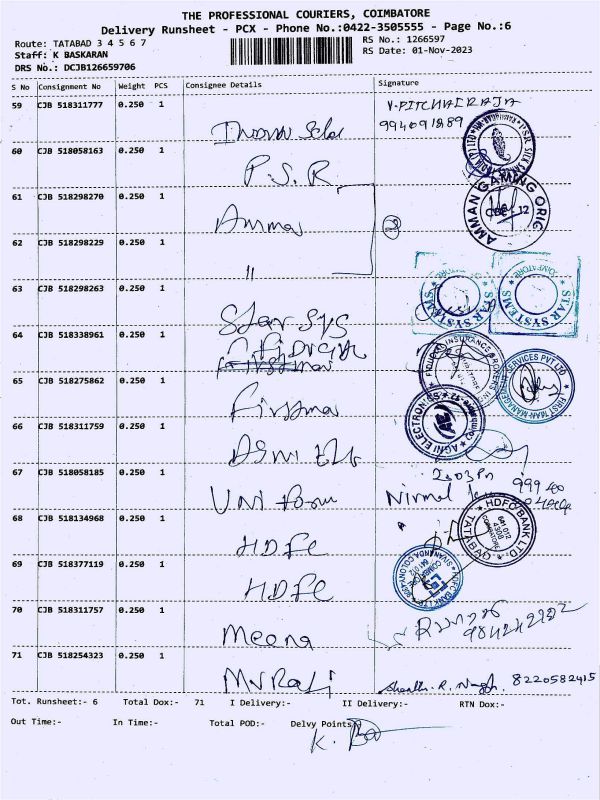 THE PROFESSIONAL COURIERS, COIMBATORE
Delivery Runsheet - PCX - Phone No.:0422-3505555 - Page No.:6
Route: TATABAD 3 4 5 6 7
RS No.: 1266597
Staff: K BASKARAN
RS Date: 01-Nov-2023
DRS No.: DCJB126659706
S No Consignment No Weight PCS Consignee Details Signature
59 CJB 518311777 0.250 1
60 CJB 518058163 0.250 1 P.S.R.
61 CJB 518298270 0.250 1 Amman
AMMAN GAMING ORIG
62 CJB 518298229 0.250 1 "
63 CJB 518298263 0.250 1 Star Sys
STAR SYSTEMS STAR SYSTEMS
64 CJB 518338961 0.250 1
65 CJB 518275862 0.250 1
FIRST MAN MANAGEMENT SERVICES PVT LTD
66 CJB 518311759 0.250 1
AGNI ELECTRONICS
67 CJB 518058185 0.250 1 Uniform Nirmal
68 CJB 518134968 0.250 1 HDFC
HDFC BANK LTD. TATABAD
69 CJB 518377119 0.250 1 HDFC
70 CJB 518311757 0.250 1 Meena
71 CJB 518254323 0.250 1 8220582415
Tot. Runsheet:- 6 Total Dox:- 71 I Delivery:- II Delivery:- RTN Dox:-
Out Time:- In Time:- Total POD:- Delvy Points:-